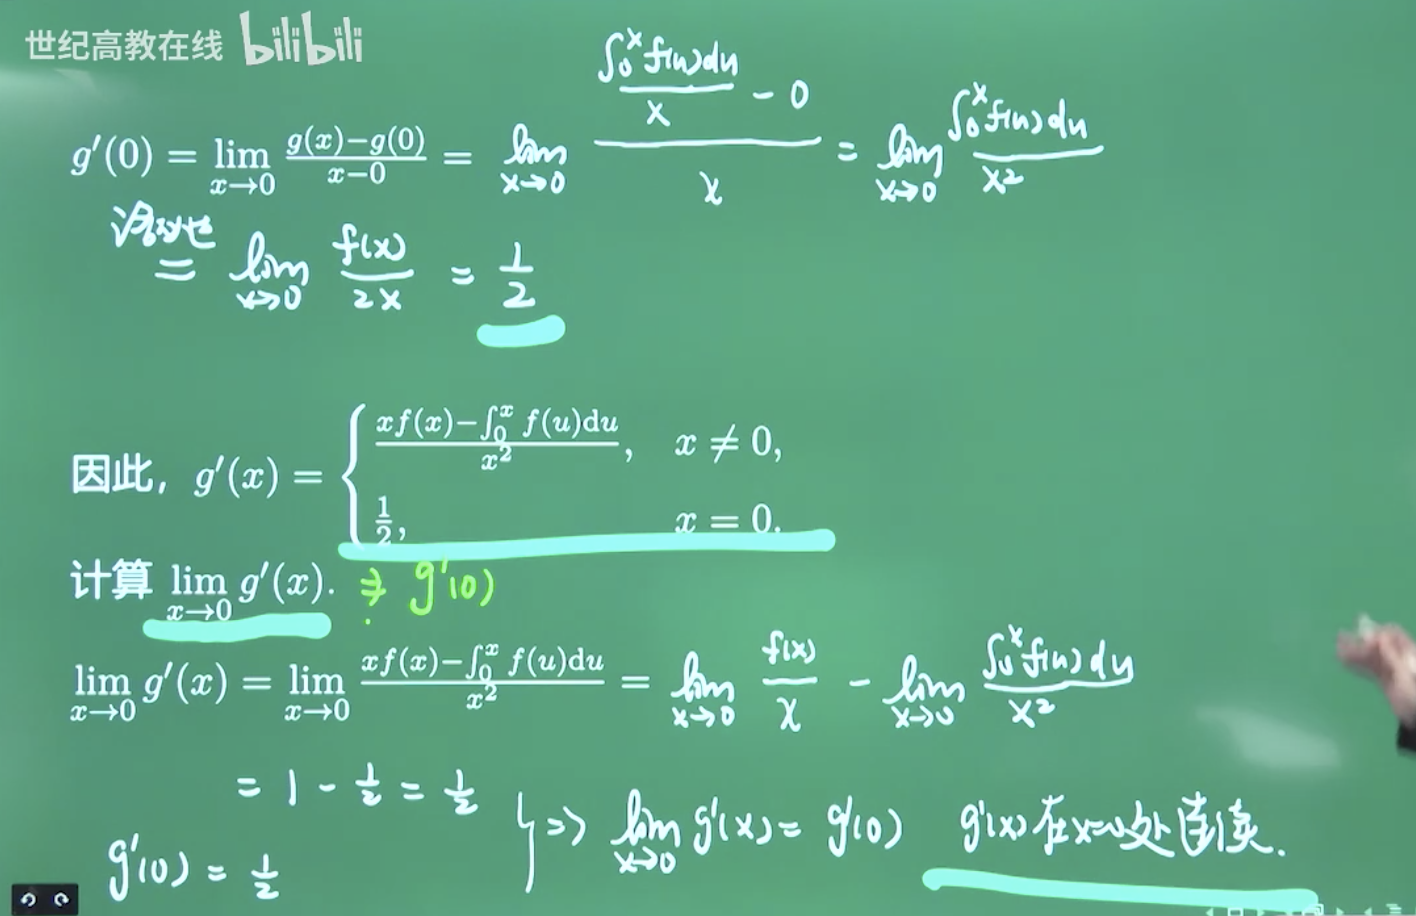 世纪高教在线 bilibili
g′(0) = lim_{x→0} (g(x)−g(0))/(x−0) = lim_{x→0} ((∫₀ˣ f(u)du)/x − 0)/x = lim_{x→0} (∫₀ˣ f(u)du)/x²
洛必达
= lim_{x→0} f(x)/(2x) = 1/2
因此, g′(x) = { (xf(x)−∫₀ˣ f(u)du)/x², x ≠ 0,
1/2, x = 0.
计算 lim_{x→0} g′(x). g′(0)
lim_{x→0} g′(x) = lim_{x→0} (xf(x)−∫₀ˣ f(u)du)/x² = lim_{x→0} f(x)/x − lim_{x→0} (∫₀ˣ f(u)du)/x²
= 1 − 1/2 = 1/2
g′(0) = 1/2
} => lim_{x→0} g′(x) = g′(0) g′(x)在x=0处连续.